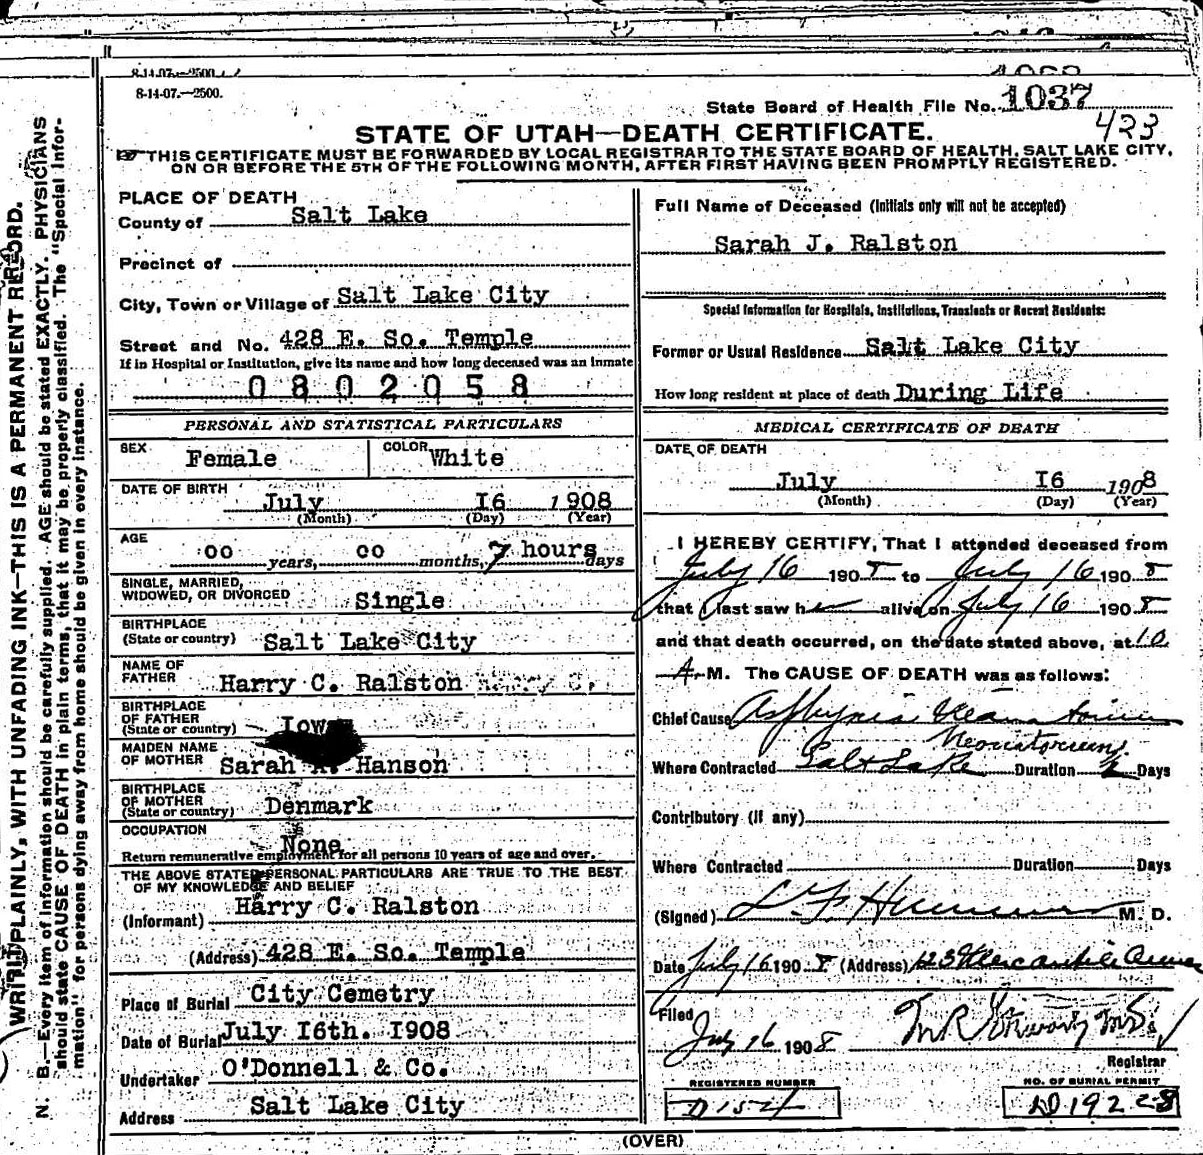 8-14-07.—2500.
8-14-07.—2500.
State Board of Health File No. 1037
423
STATE OF UTAH—DEATH CERTIFICATE.
☞ THIS CERTIFICATE MUST BE FORWARDED BY LOCAL REGISTRAR TO THE STATE BOARD OF HEALTH, SALT LAKE CITY,
ON OR BEFORE THE 5TH OF THE FOLLOWING MONTH, AFTER FIRST HAVING BEEN PROMPTLY REGISTERED.
WRITE PLAINLY, WITH UNFADING INK—THIS IS A PERMANENT RECORD.
N. B.—Every item of information should be carefully supplied. AGE should be stated EXACTLY. PHYSICIANS
should state CAUSE OF DEATH in plain terms, that it may be properly classified. The "Special Infor-
mation" for persons dying away from home should be given in every instance.
PLACE OF DEATH
County of Salt Lake
Precinct of
City, Town or Village of Salt Lake City
Street and No. 428 E. So. Temple
If in Hospital or Institution, give its name and how long deceased was an inmate
0802058
PERSONAL AND STATISTICAL PARTICULARS
SEX Female COLOR White
DATE OF BIRTH July I6 1908
(Month) (Day) (Year)
AGE oo years, oo months, 7 hours days
SINGLE, MARRIED,
WIDOWED, OR DIVORCED Single
BIRTHPLACE
(State or country) Salt Lake City
NAME OF
FATHER Harry C. Ralston
BIRTHPLACE
OF FATHER
(State or country) Iowa
MAIDEN NAME
OF MOTHER Sarah Hanson
BIRTHPLACE
OF MOTHER
(State or country) Denmark
OCCUPATION None
Return remunerative employment for all persons 10 years of age and over.
THE ABOVE STATED PERSONAL PARTICULARS ARE TRUE TO THE BEST
OF MY KNOWLEDGE AND BELIEF
(Informant) Harry C. Ralston
(Address) 428 E. So. Temple
Place of Burial City Cemetry
Date of Burial July I6th. I908
Undertaker O'Donnell & Co.
Address Salt Lake City
Full Name of Deceased (Initials only will not be accepted)
Sarah J. Ralston
Special Information for Hospitals, Institutions, Transients or Recent Residents:
Former or Usual Residence Salt Lake City
How long resident at place of death During Life
MEDICAL CERTIFICATE OF DEATH
DATE OF DEATH
July I6 1908
(Month) (Day) (Year)
I HEREBY CERTIFY, That I attended deceased from
July 16 1908 to July 16 1908
that I last saw her alive on July 16 1908
and that death occurred, on the date stated above, at 10
A. M. The CAUSE OF DEATH was as follows:
Chief Cause Asphyxia
Neonatorum
Where Contracted Salt Lake Duration Days
Contributory (if any)
Where Contracted Duration Days
(Signed) M. D.
Date July 16 1908 (Address) 123 Mercantile
Filed
July 16 1908
Registrar
REGISTERED NUMBER
NO. OF BURIAL PERMIT
(OVER)